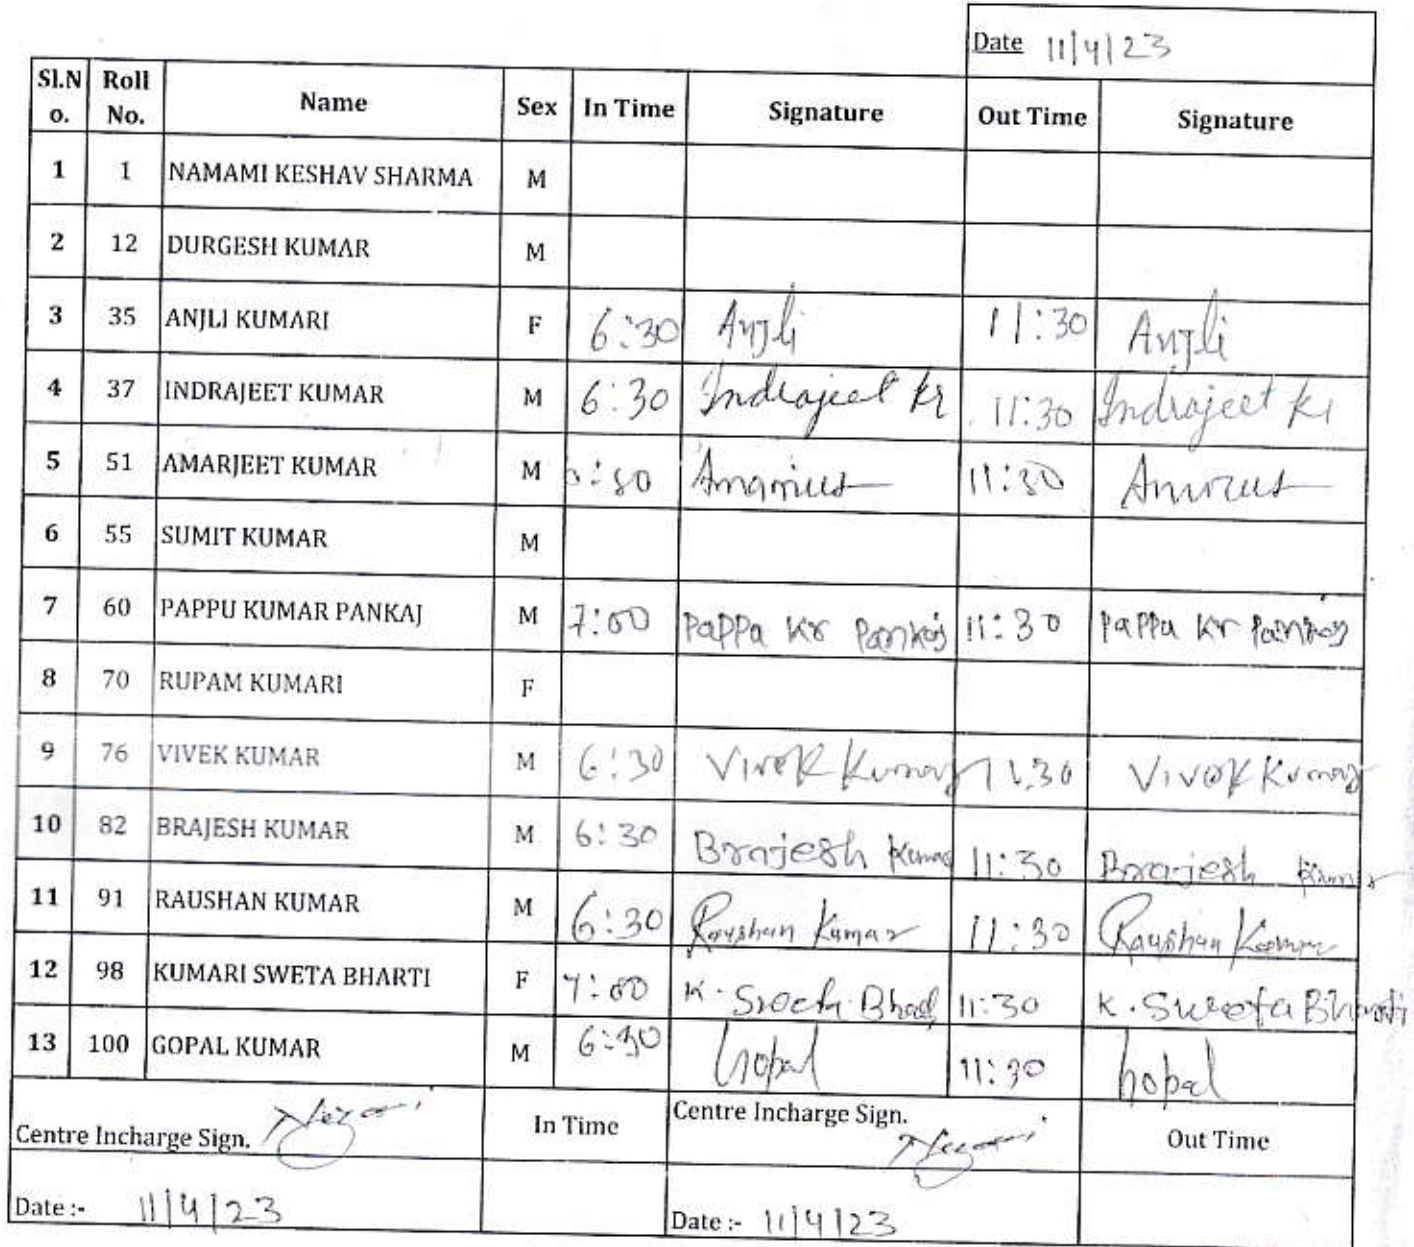 Date 11/4/23
Sl.No. Roll No. Name Sex In Time Signature Out Time Signature
1 1 NAMAMI KESHAV SHARMA M
2 12 DURGESH KUMAR M
3 35 ANJLI KUMARI F 6:30 Anjli 11:30 Anjli
4 37 INDRAJEET KUMAR M 6:30 Indrajeet kr 11:30 Indrajeet kr
5 51 AMARJEET KUMAR M 11:30
6 55 SUMIT KUMAR M
7 60 PAPPU KUMAR PANKAJ M 7:00 Pappu Kr Pankaj 11:30 Pappu Kr Pankaj
8 70 RUPAM KUMARI F
9 76 VIVEK KUMAR M 6:30 Vivek Kumar 11:30 Vivek Kumar
10 82 BRAJESH KUMAR M 6:30 Brajesh Kumar 11:30 Brajesh Kumar
11 91 RAUSHAN KUMAR M 6:30 Raushan Kumar 11:30 Raushan Kumar
12 98 KUMARI SWETA BHARTI F 7:00 K. Sweta Bharti 11:30 K. Sweta Bharti
13 100 GOPAL KUMAR M 6:30 Gopal 11:30 Gopal
Centre Incharge Sign. In Time Centre Incharge Sign. Out Time
Date :- 11/4/23 Date :- 11/4/23